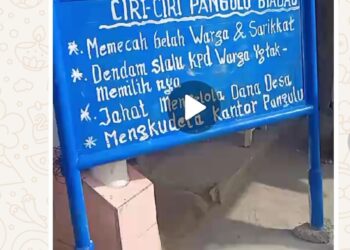 CIRI-CIRI PANGULU BIADAB
* Memecah belah Warga & Sarikkat
* Dendam slalu kpd Warga Ygtak-
memilih nya
* Jahat Mengelola Dana Desa
* Mengkudeta Kantor Pangulu